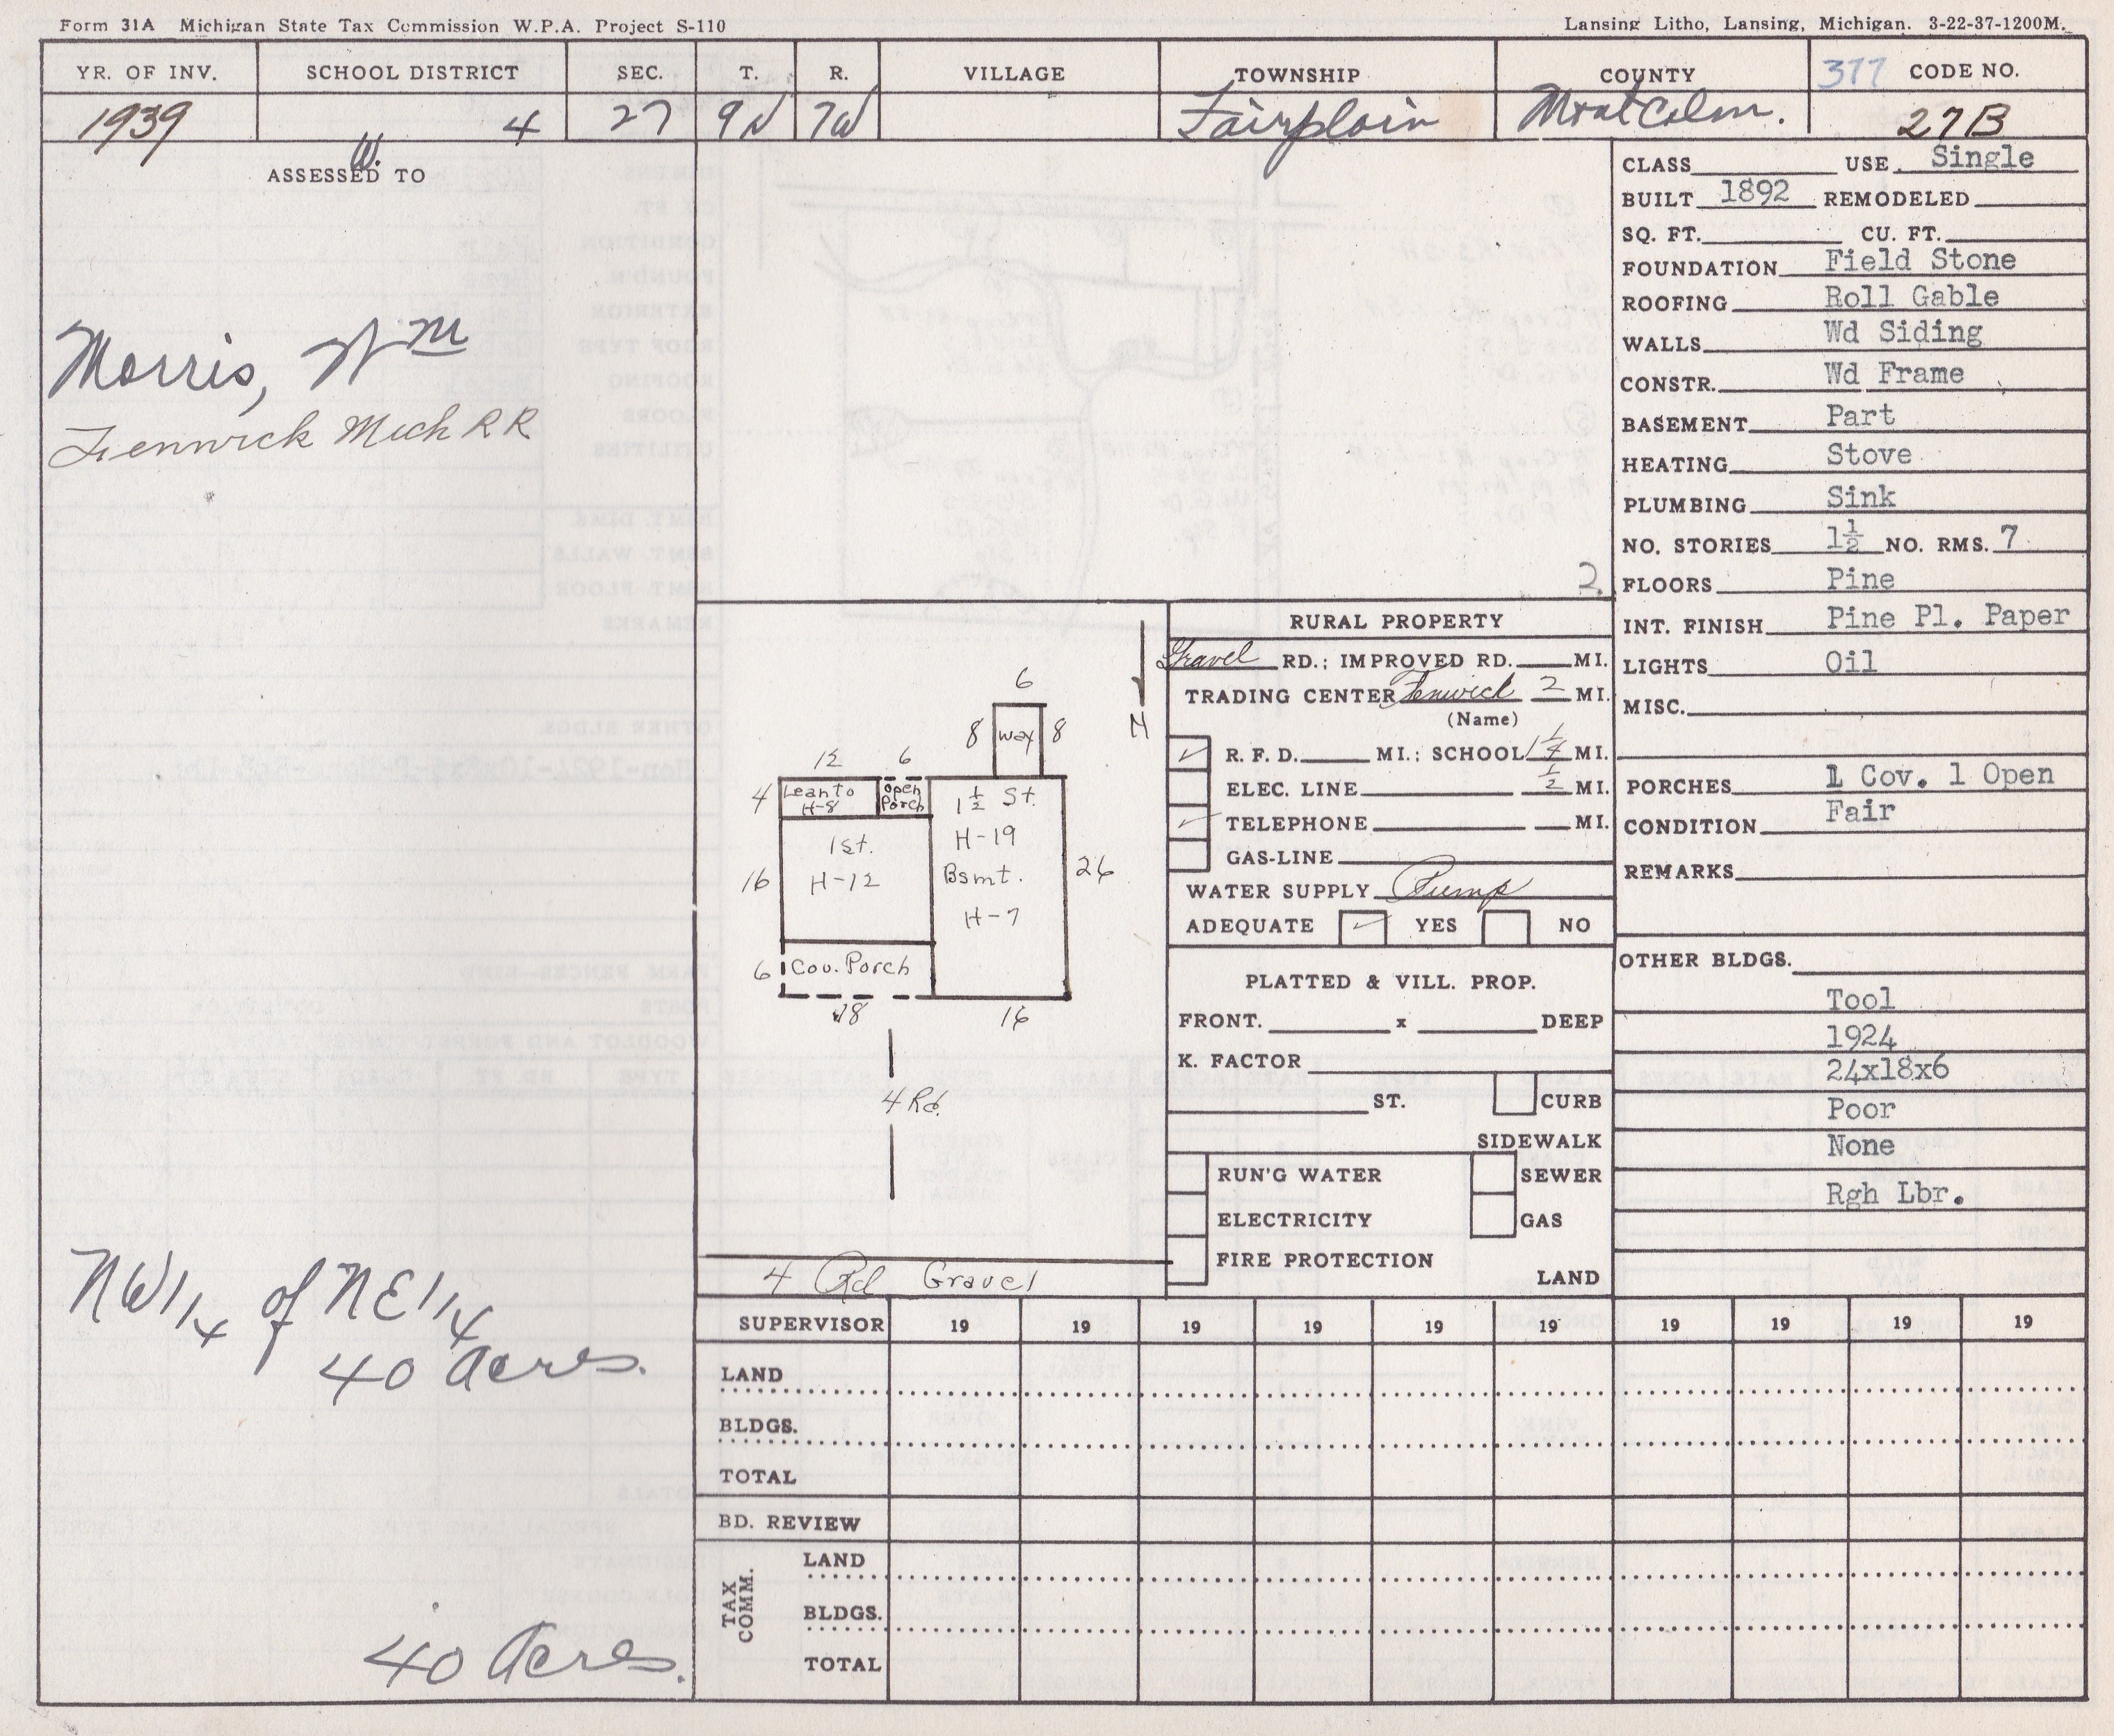 Form 31A Michigan State Tax Commission W.P.A. Project S-110
Lansing Litho, Lansing, Michigan. 3-22-37-1200M.
YR. OF INV. SCHOOL DISTRICT SEC. T. R. VILLAGE TOWNSHIP COUNTY 377 CODE NO.
1939 4 27 9N 7W Fairplain Montcalm. 27B
W.
ASSESSED TO
Morris, Wm
Fenwick Mich RR
NW 1/4 of NE 1/4
40 Acres.
40 Acres.
CLASS USE Single
BUILT 1892 REMODELED
SQ. FT. CU. FT.
FOUNDATION Field Stone
ROOFING Roll Gable
WALLS Wd Siding
CONSTR. Wd Frame
BASEMENT Part
HEATING Stove
PLUMBING Sink
NO. STORIES 1½ NO. RMS. 7
2
FLOORS Pine
INT. FINISH Pine Pl. Paper
LIGHTS Oil
MISC.
PORCHES 1 Cov. 1 Open
CONDITION Fair
REMARKS
OTHER BLDGS.
Tool
1924
24x18x6
Poor
None
Rgh Lbr.
N
6
8 way 8
12 6
4 Leanto H-8
open Porch
1½ St.
H-19
Bsmt.
H-7
26
1 St.
H-12
16
6 Cov. Porch
18 16
4 Rd.
4 Rd Gravel
RURAL PROPERTY
Gravel RD.; IMPROVED RD. MI.
TRADING CENTER Fenwick 2 MI.
(Name)
R. F. D. MI.; SCHOOL 1¼ MI.
ELEC. LINE ½ MI.
TELEPHONE MI.
GAS-LINE
WATER SUPPLY Pump
ADEQUATE YES NO
PLATTED & VILL. PROP.
FRONT. x DEEP
K. FACTOR
ST. CURB
SIDEWALK
RUN'G WATER SEWER
ELECTRICITY GAS
FIRE PROTECTION
LAND
SUPERVISOR 19 19 19 19 19 19 19 19 19 19
LAND
BLDGS.
TOTAL
BD. REVIEW
TAX COMM.
LAND
BLDGS.
TOTAL